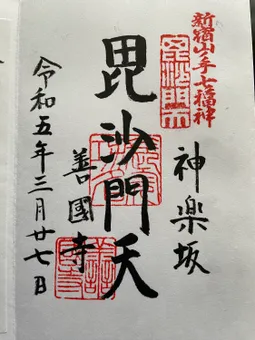 新宿山ノ手七福神
神楽坂
毘沙門天
善國寺
令和五年三月廿七日